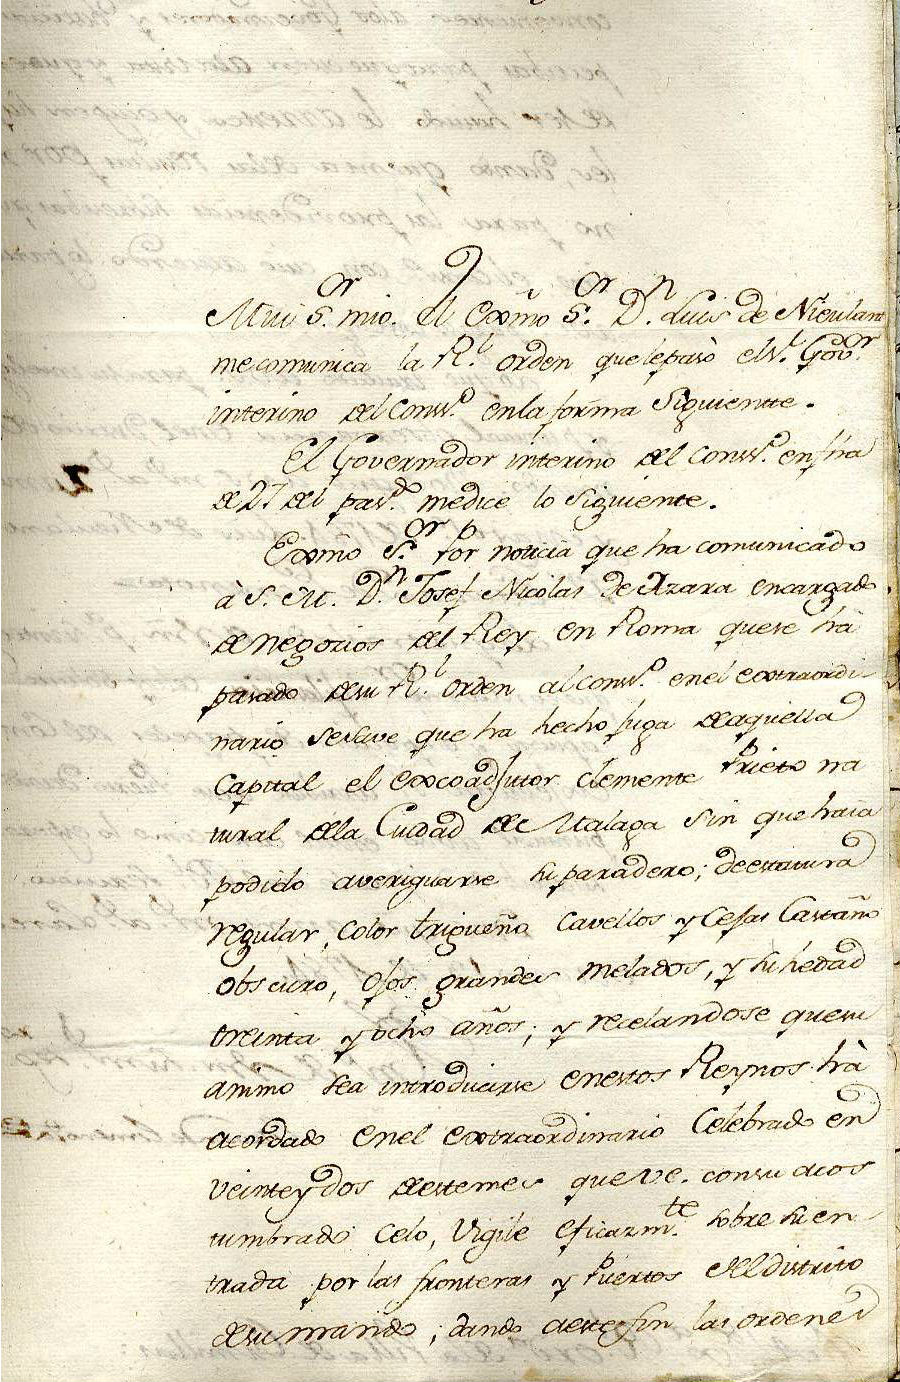 Mui S.or mio. El Exmõ S.or D.n Luis de Nieulant
me comunica la R.l orden que le pasò el S.r Gov.or
interino del Cons.o en la forma Siguiente.
El Governador interino del Cons.o en fha
de 27. del pas.do me dice lo Siguiente.
Exmõ S.or Por noticia que ha comunicado
à S. M. D.n Josef Nicolas de Azara encargado
de negocios del Rey en Roma que se hà
pasado de su R.l orden al Cons.o en el extraordi-
nario se save que ha hecho fuga de aquella
Capital el excoadjutor Clemente Prieto na
tural de la Ciudad de Malaga sin que haia
podido averiguarse su paradero; de estatura
regular, Color trigueño Cavellos y Cejas Castaño
obscuro, Ojos grandes melados, y su hedad
treinta y ocho años; y recelandose que su
animo sea introducirse en estos Reynos hà
acordado en el extraordinario Celebrado en
veinte y dos de este mes que V.e. con su acos
tumbrado Celo, Vigile eficazm.te sobre su en-
trada por las fronteras y Puertos del distrito
de su mando; dando a este fin las ordenes
2